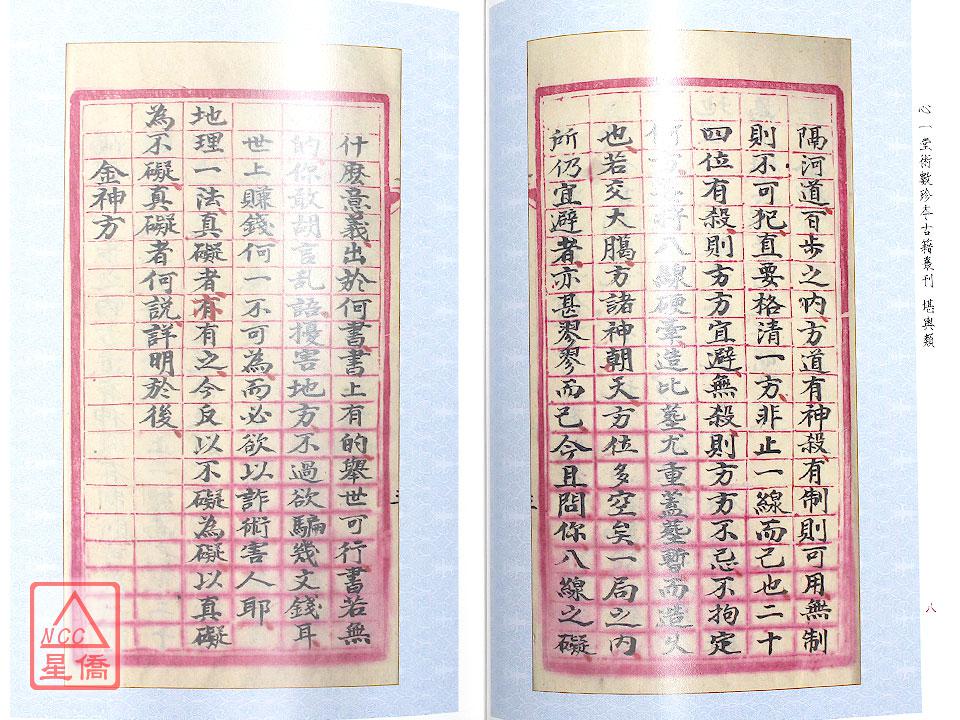 心一堂術數珍本古籍叢刊 堪輿類
八
隔河道百步之吶方道有神殺有制則可用無制
則不可犯直要格清一方非止一線而已也二十
四位有殺則方方宜避無殺則方方不忌不拘定
八線硬牽造比塟尤重蓋塟暫而造久
也若交大臈方諸神朝天方位多空矣一局之內
所仍宜避者亦甚寥寥而已今且問你八線之礙
什麽意義出於何書書上有的舉世可行書若無
的你敢胡言乱語擾害地方不過欲騙幾文錢耳
世上賺錢何一不可為而必欲以詐術害人耶
地理一法真礙者有有之今反以不礙為礙以真礙
為不礙真礙者何説詳明於後
金神方
三
NCC
星僑